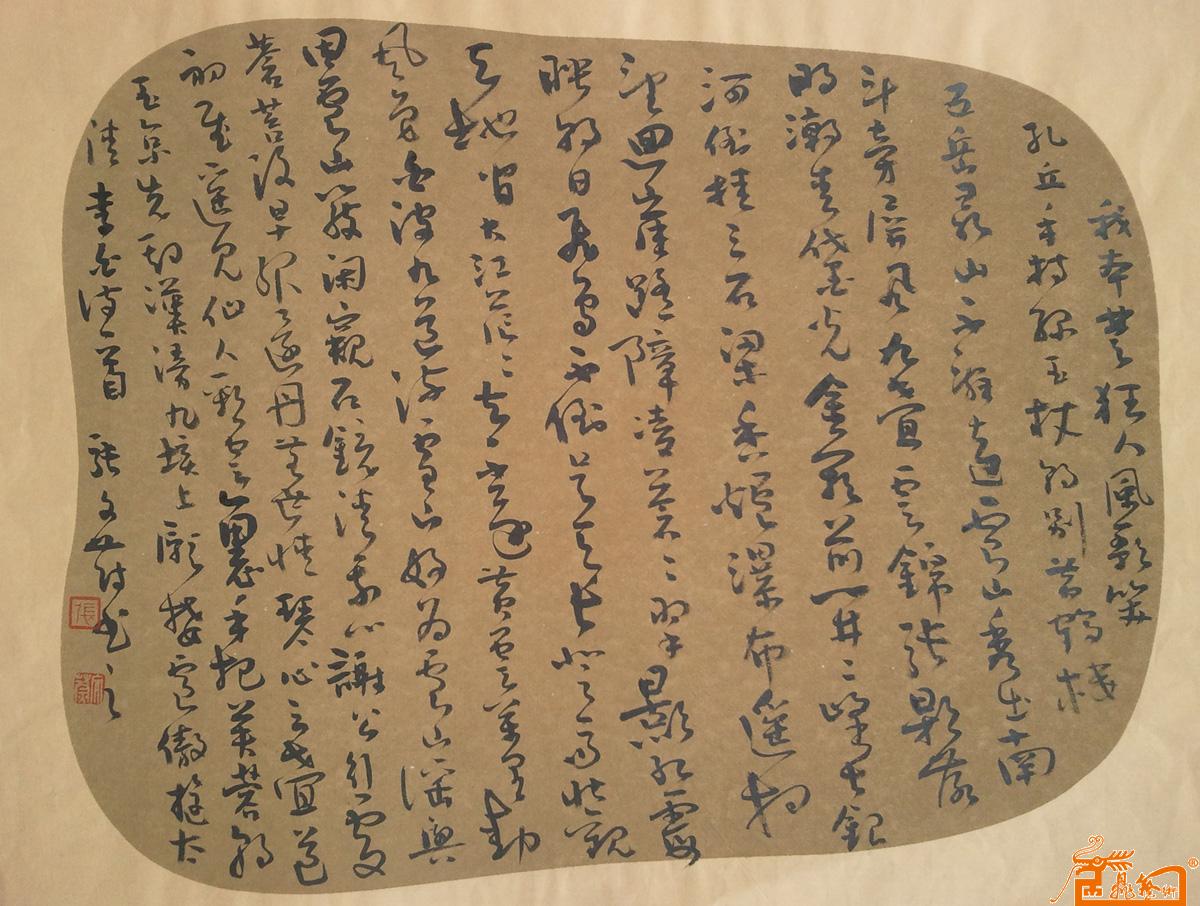 我本楚狂人風歌笑
孔丘手持綠玉杖朝別黃鶴樓
五岳尋山不辭遠廬山秀出南
斗旁屏風九疊雲錦張影落
明湖青黛光金闕前開二峰長銀
河倒挂三石梁香爐瀑布遙相
望迴崖沓障凌蒼〻翠影紅霞
映朝日飛鳥不到吳天長登高壯觀
天地間大江茫〻去不還黃雲萬里動
風色白波九道流雪山好為廬山謠興
因廬山發閑窺石鏡清我心謝公行處
蒼苔沒早服還丹無世情琴心三疊道
初成遙見仙人彩雲裏手把芙蓉朝
玉京先期漢漫九垓上願接盧敖遊太
清 李白詩一首 張文 書
張